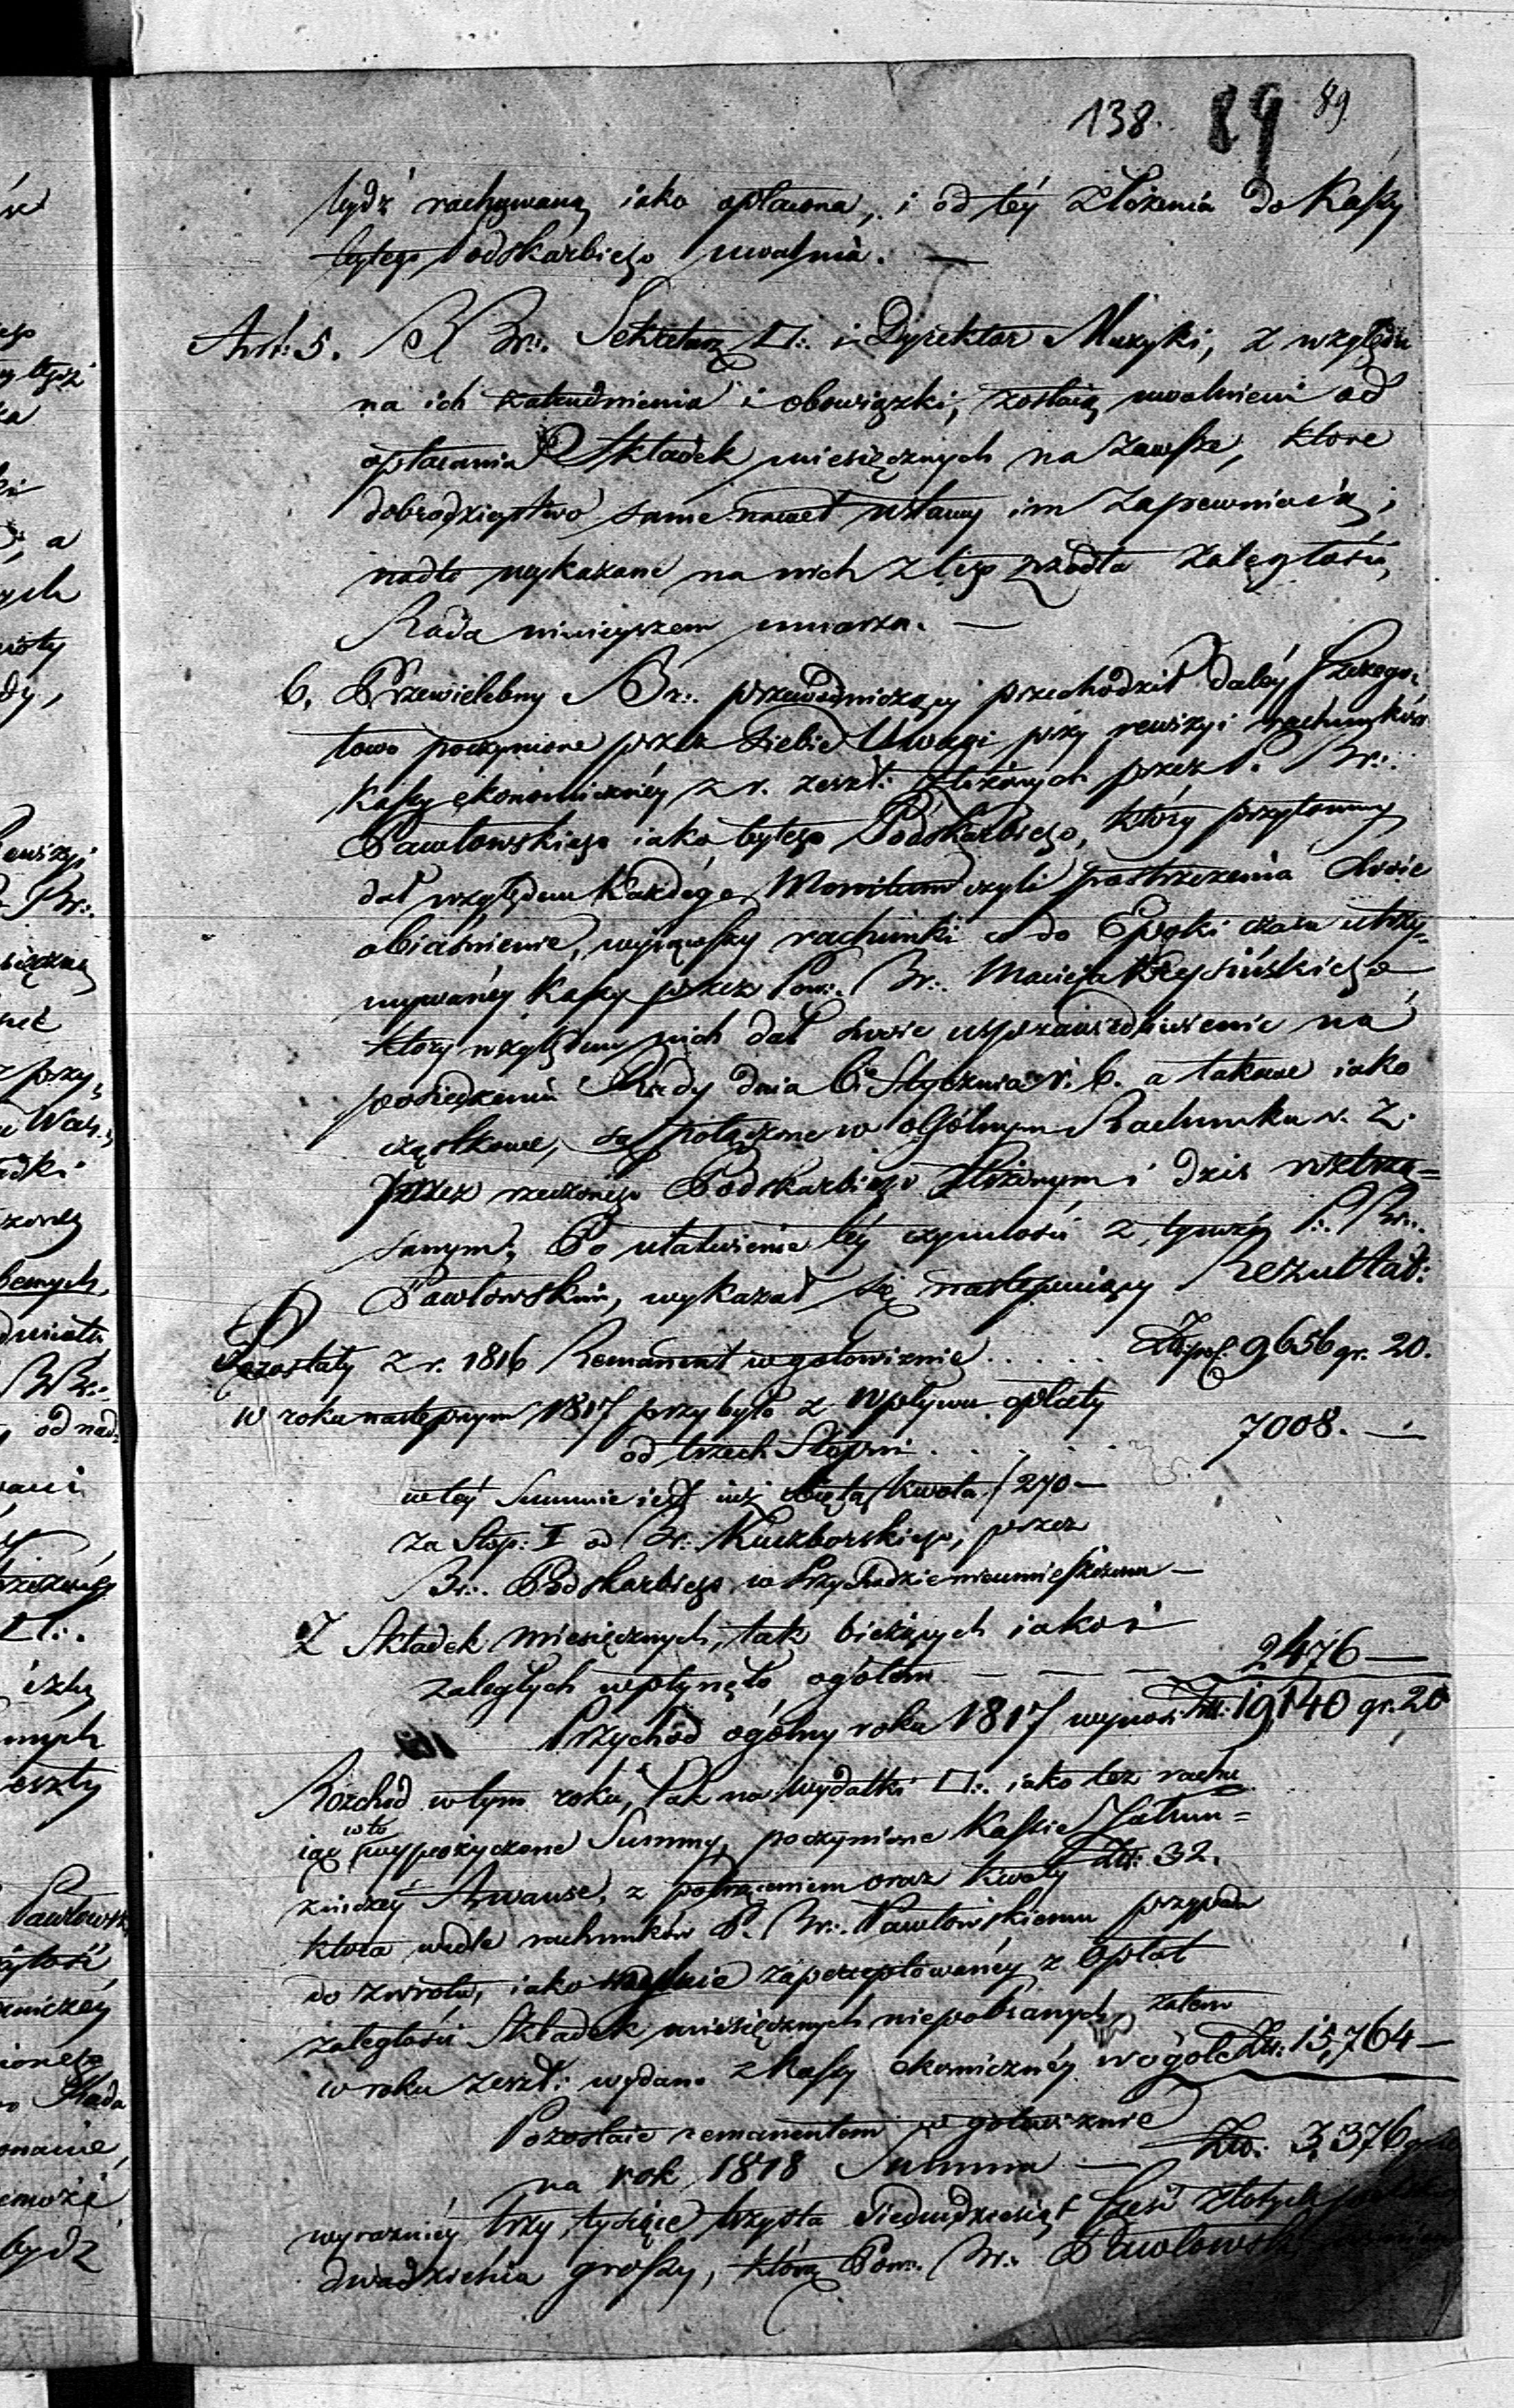 138. 89 89.
bydź rachowaną iako opłacona, i od téy złożenia do Kassy
byłego Podskarbiego uwalnia. —
Art: 5. BBr∴ Sekretarz □∴ i Dyrektor Muzyki, z względu
na ich zatrudnienia i obowiązki, zostaią uwolnieni od
opłacania Składek miesięcznych na zawsze, które
dobrodzieystwo same nawet ustawy im zapewniaią;
nadto wykazane na nich z tego źrzodła zaległości,
Rada ninieyszem umarza. —
6. Przewielebny Br∴ przewodniczący przechodził daléy szczegó-
łowo poczynione przez siebie Uwagi przy rewizyi rachunków
Kassy ekonomicznéy z r. zeszł: złożonych przez P. Br∴
Pawłowskiego iako byłego Podskarbiego, który przytomny
dał względem każdego Monitum czyli postrzeżenia swoie
obiaśnienie, wyiąwszy rachunki co do Epoki czasu utrzy-
mywanéy Kassy przez Pow∴ Br∴ Macieja
który względem nich dał swoie usprawiedliwienie na
posiedzeniu Rady dnia 6. Stycznia r. b. a takowe iako
cząstkowe, są połączone w ogólnym Rachunku r. z.
przez rzeczonego Podskarbiego złożonym i dziś roztrzą=
sanym; Po ułatwienie téy czynności z tymże P∴ Br∴
Pawłowskim, wykazał się następuiący Rezultat:
Pozostały z r. 1816 Remanent w gotowiznie . . . . . Złt: pol. 9656 gr. 20.
w roku następnym 1817 przybyło z wpływu opłaty
od trzech Stopni . . . . . 7008. —
w téy Summie iest iuż kwota / 270 —
za Stop: I od Br: Kuczborskiego, przez
Br∴ Podskarbiego w Przychodzie nieumieszczona —
Z Składek miesięcznych, tak bieżących iako i
zaległych wpłynęło ogółem — — — 2476 —
Przychód ogólny roku 1817 wynosi Złt: 19,140 gr. 20
Rozchód w tym roku, tak na wydatki □∴ iako też rachu
iąc w to wypożyczone Summy, poczynione Kassie Jałmu=
żniczéy Awanse, z potrąceniem oraz kwoty Złt: 32.
która wedle rachunków P. Br∴ Pawłowskiemu przypada
do zwrotu, iako zaperceptowanéy z Opłat
zaległości Składek miesięcznych niepobranych, zatem
w roku zeszł: wydano z Kassy ekonomicznéy w ogóle Złt: 15,764 —
Pozostaie remanentem w gotowiznie
na rok 1818 Summa — Złt: 3,376 gr. 20
wyraźniéy trzy tysiące trzysta siedmdziesiąt sześć złotych polskich
dwadzieścia groszy, którą Pow∴ Br∴ Pawłowski